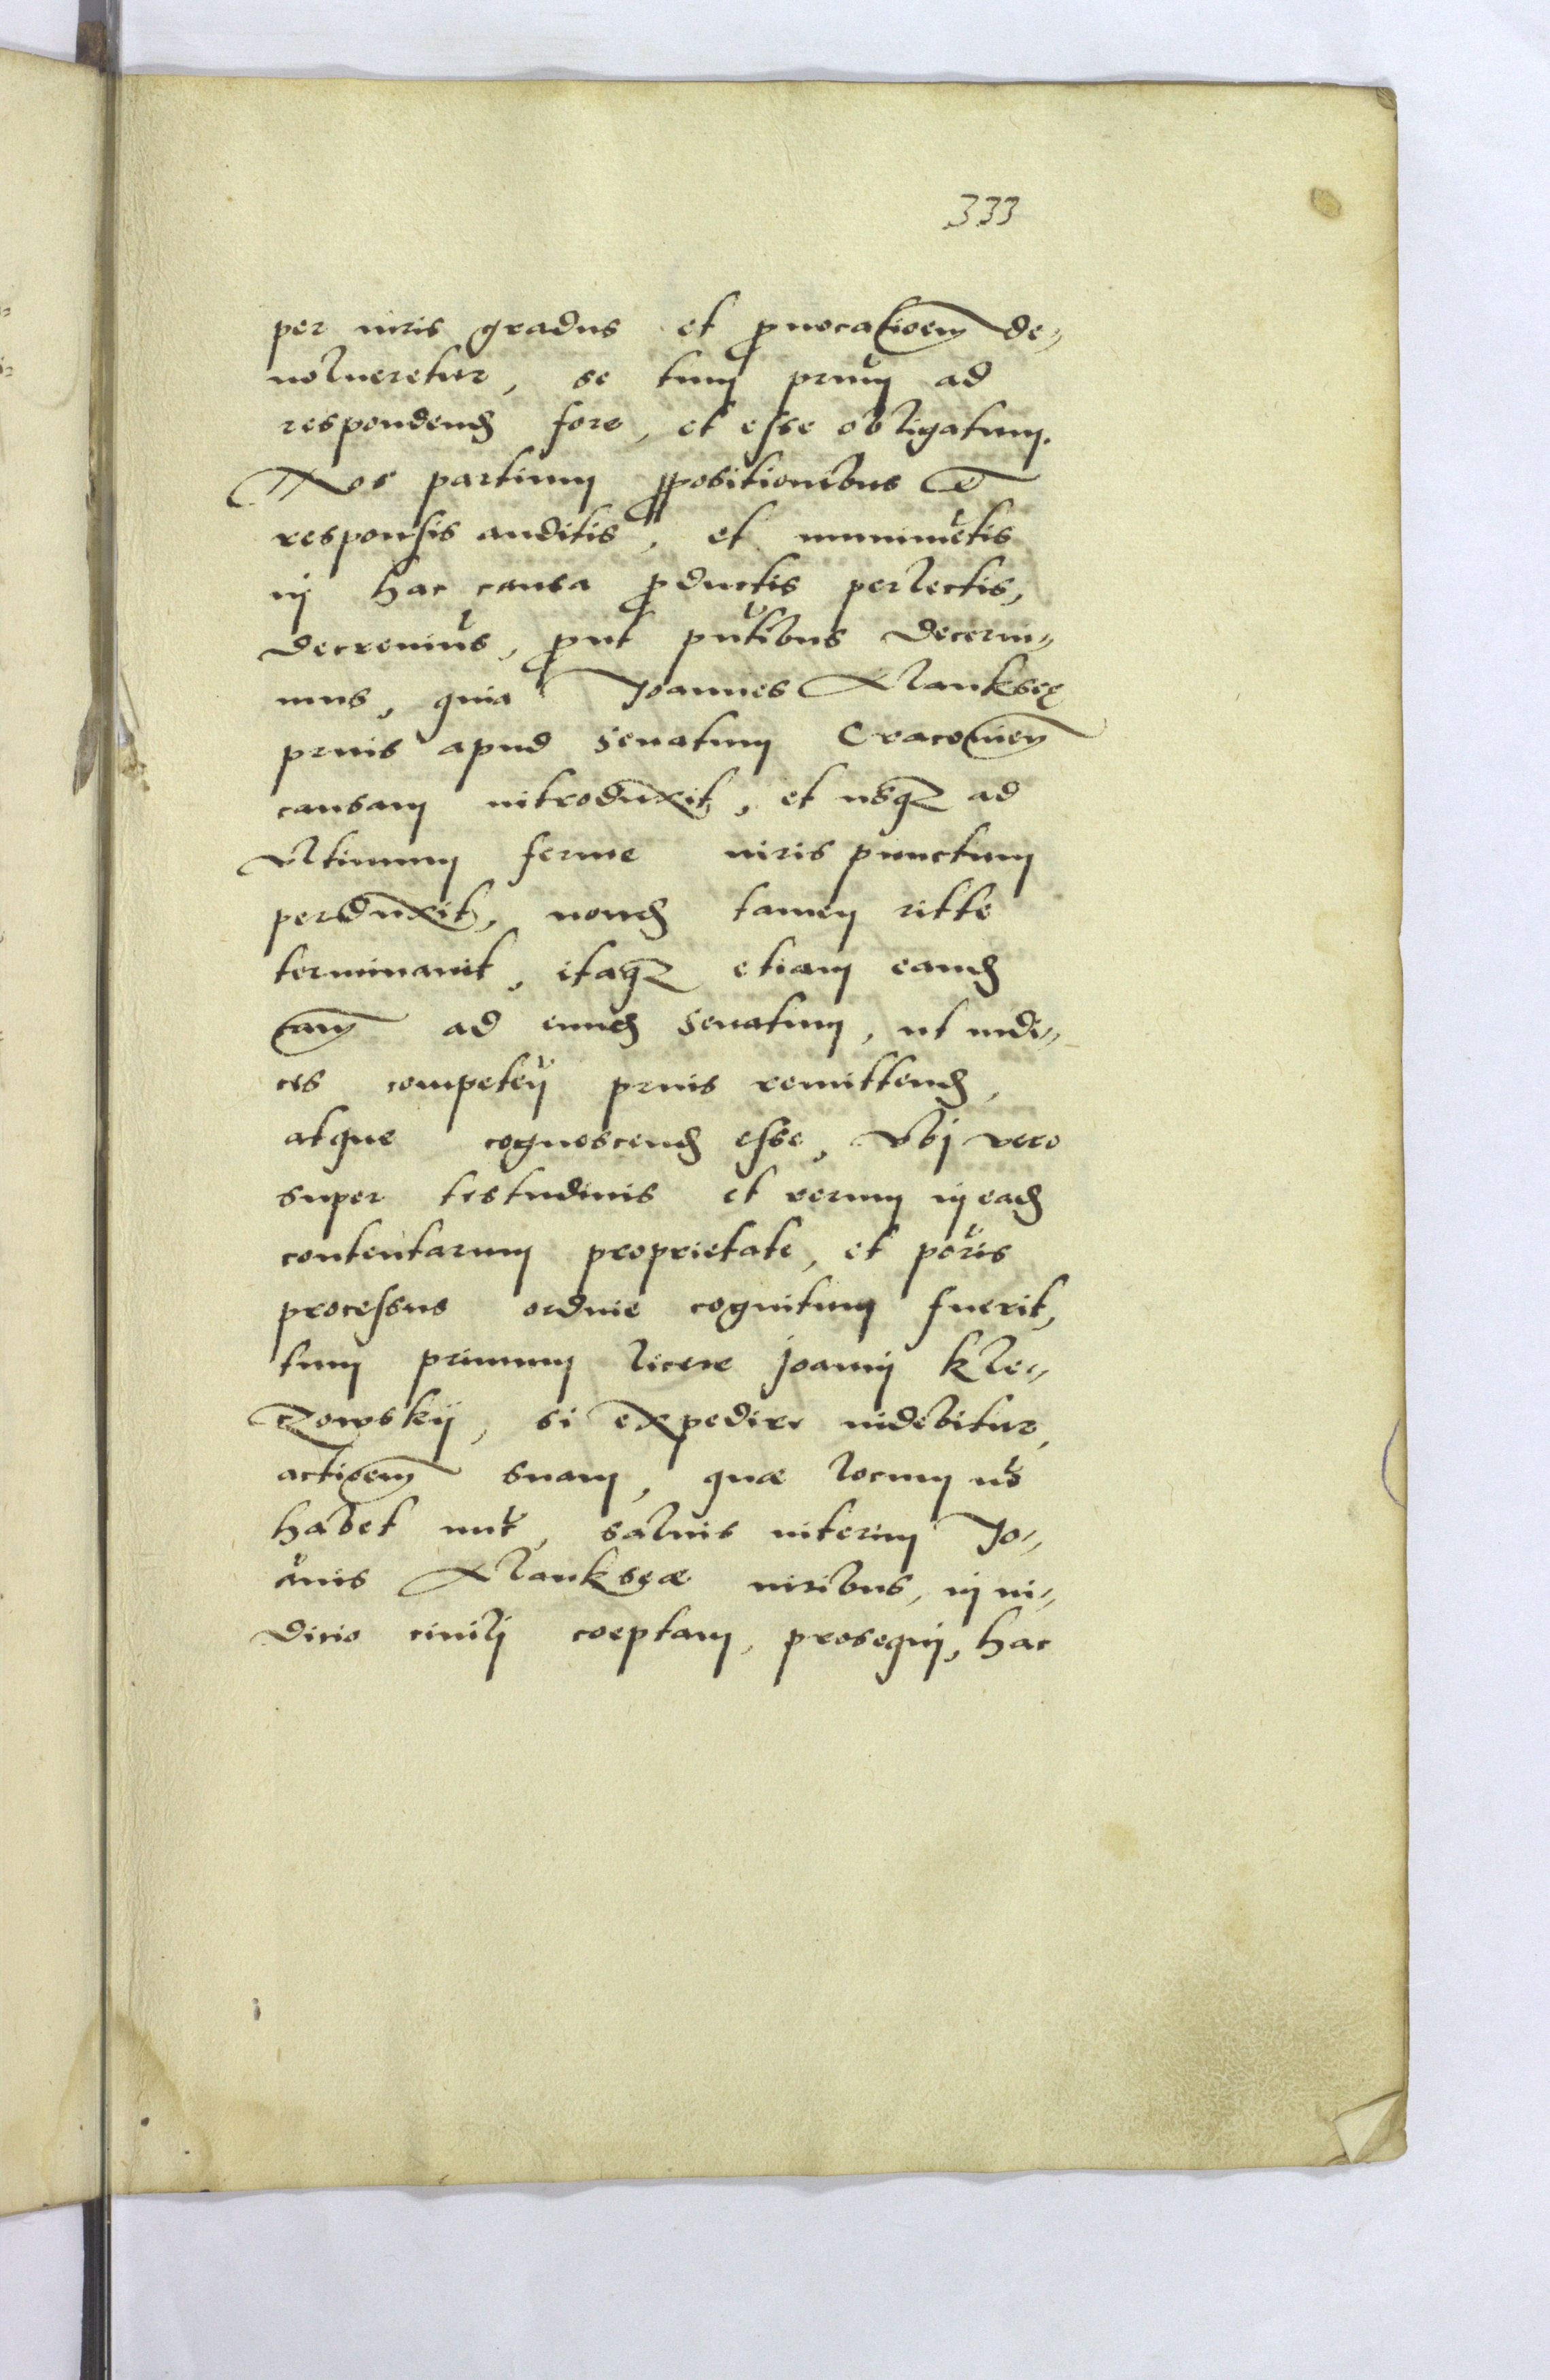 333
per iuris gradus et ꝓuocatioem de„
uolueretur, se tum prmu ad
respondend fore, et esse obligatum.
Nos partium ꝓpositionibus et
responsis auditis, et munimetis
in hac causa ꝓductis perlectis,
decreuius, ꝓut pntibus decerni„
mus, quia Joannes
prius apud senatum Cracouien
causam introduxit, et usqꝫ ad
vltimum ferme iuris punctum
perduxit, nond tamen ritte
terminauit, itaqꝫ etiam eand
cam ad eund senatum, ut iudi„
cis competen prius remittend,
atque cognoscend esse, vbi vero
super testudinis et rerum in ead
contentarum proprietate, et poris
processus ordine cognitum fuerit,
tum primum licere joanni kle„
czowskij, si expedire uidebitur,
actioem suam, quae locum no
habet nuc, saluis interim Jo„
anis iuribus, in iu„
dicio ciuili coeptam, prosequi, hac